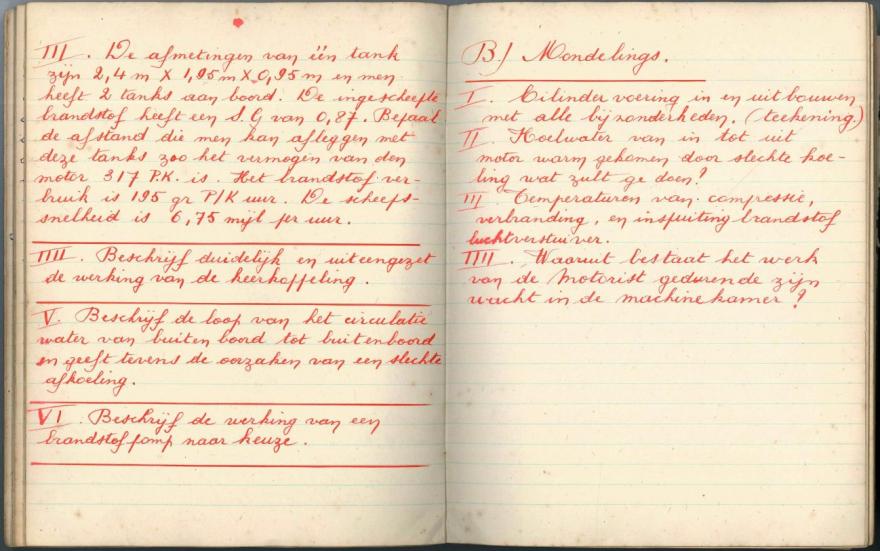 III. De afmetingen van één tank
zijn 2,4 m X 1,95 m X 0,95 m en men
heeft 2 tanks aan boord. De ingescheepte
brandstof heeft een S.G van 0,87. Bepaal
de afstand die men kan afleggen met
deze tanks zoo het vermogen van den
motor 317 P.K. is. Het brandstof ver-
bruik is 195 gr P/K uur. De scheeps-
snelheid is 6,75 mijl per uur.
IIII. Beschrijf duidelijk en uiteengezet
de werking van de keerkoppeling.
V. Beschrijf de loop van het circulatie
water van buiten boord tot buitenboord
en geeft tevens de oorzaken van een slechte
afkoeling.
VI. Beschrijf de werking van een
brandstofpomp naar keuze.
B.) Mondelings.
I. Cilindervoering in en uitbouwen
met alle bijzonderheden. (teekening.)
II. Koelwater van in tot uit
motor warm gekomen door slechte koe-
ling wat zult ge doen?
III. Temperaturen van compressie,
verbranding, en inspuiting brandstof
luchtverstuiver.
IIII. Waaruit bestaat het werk
van de Motorist gedurende zijn
wacht in de machinekamer?